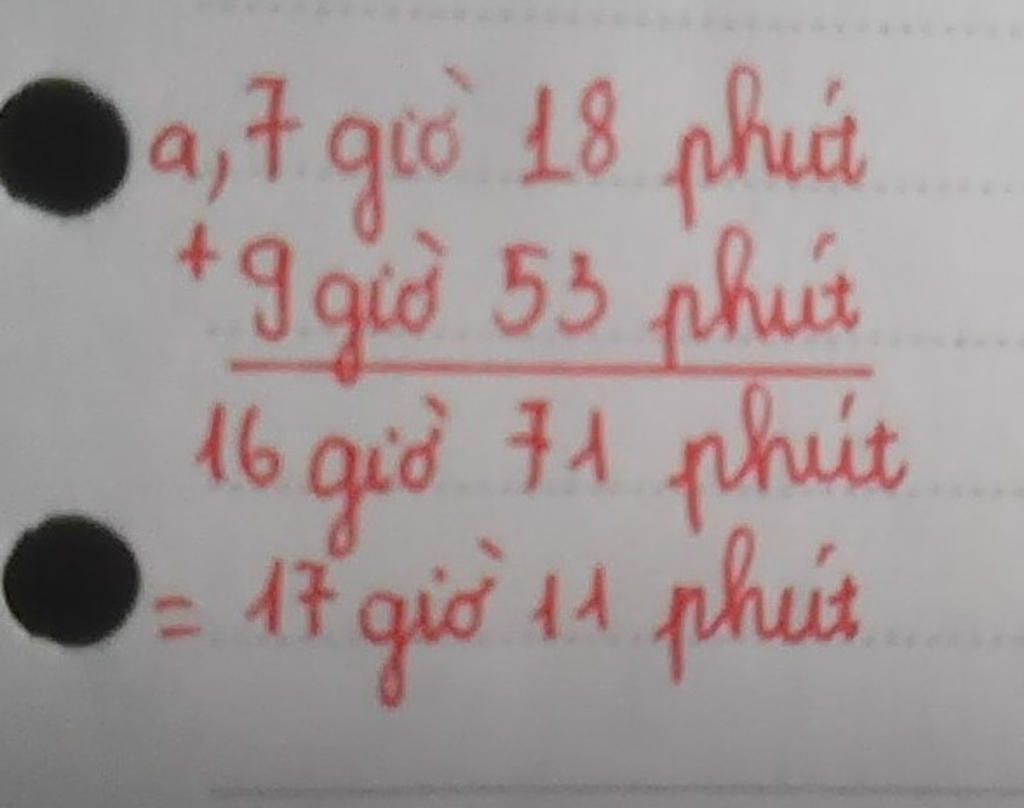 a, 7 giờ 18 phút
+ 9 giờ 53 phút
16 giờ 71 phút
= 17 giờ 11 phút